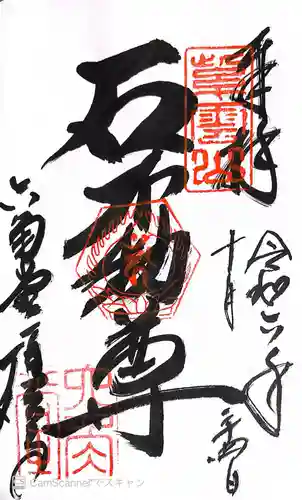 奉拝
令和六年
十月
紫雲山
石不動尊
六角堂 頂法寺
六角堂
CamScannerでスキャン